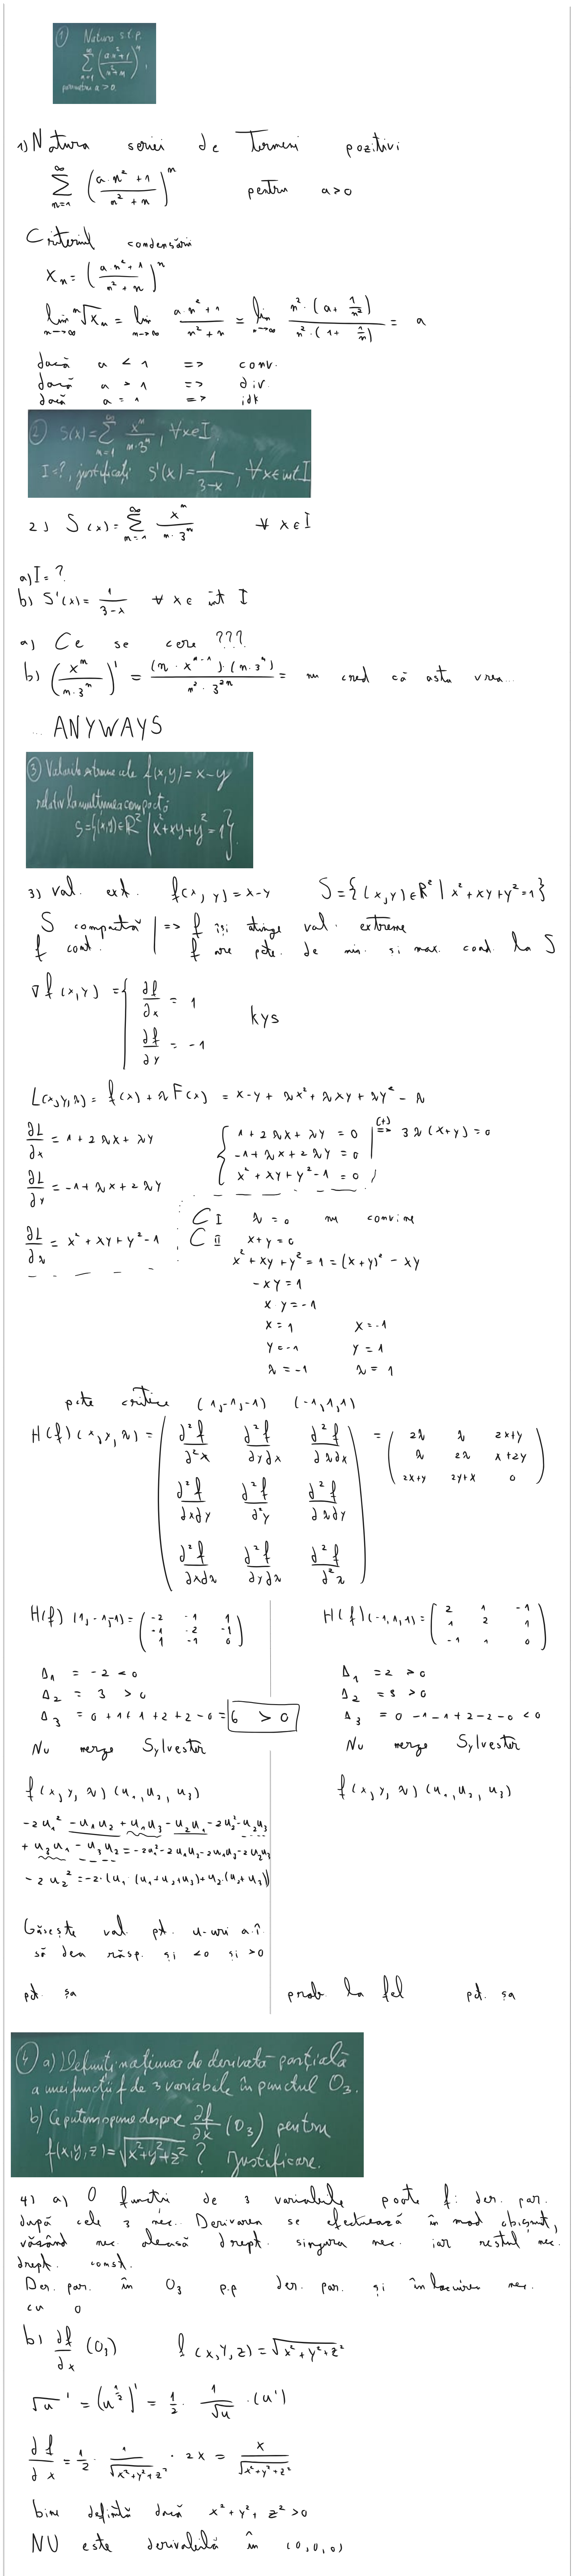 ① Natura s.t.p.
∑_{n=1}^{∞} (an²+1 / n²+n)^n,
parametru a>0.
1) Natura seriei de Termeni pozitivi
∑_{n=1}^{∞} (a·n²+1 / n²+n)^n pentru a>0
Criteriul condensării
x_n = (a·n²+1 / n²+n)^n
lim_{n→∞} ⁿ√x_n = lim_{n→∞} a·n²+1 / n²+n = lim_{n→∞} n²·(a+1/n²) / n²·(1+1/n) = a
dacă a < 1 => conv.
dacă a > 1 => div.
dacă a = 1 => idk
② S(x)=∑_{n=1}^{∞} x^n / n·3^n, ∀x∈I
I=?, justificați S'(x)=1/(3-x), ∀x∈int I
2) S(x)=∑_{n=1}^{∞} x^n / n·3^n ∀ x∈I
a) I=?
b) S'(x)= 1/(3-x) ∀ x∈ int I
a) Ce se cere ???
b) (x^n / n·3^n)' = (n·x^{n-1})·(n·3^n) / n²·3^{2n} = nu cred că asta vrea...
... ANYWAYS
③ Valorile extreme ale f(x,y)=x-y
relativ la mulțimea compactă
S={(x,y)∈ℝ² | x²+xy+y²=1}.
3) val. ext. f(x,y)=x-y S={(x,y)∈ℝ² | x²+xy+y²=1}
S compactă | => f își atinge val. extreme
f cont. | f are pcte. de min. si max. cond. la S
∇f(x,y) = { ∂f/∂x = 1
∂f/∂y = -1
kys
L(x,y,λ)= f(x)+λF(x) = x-y+λx²+λxy+λy²-λ
∂L/∂x = 1+2λx+λy
{ 1+2λx+λy=0 | (+) => 3λ(x+y)=0
-1+λx+2λy=0
x²+xy+y²-1=0
∂L/∂y = -1+λx+2λy
∂L/∂λ = x²+xy+y²-1
C I λ=0 nu convine
C II x+y=0
x²+xy+y²=1=(x+y)²-xy
-xy=1
xy=-1
x=1 x=-1
y=-1 y=1
λ=-1 λ=1
pcte critice (1,-1,-1) (-1,1,1)
H(f)(x,y,λ)= ( ∂²f/∂²x ∂²f/∂y∂x ∂²f/∂λ∂x = ( 2λ λ 2x+y
∂²f/∂x∂y ∂²f/∂²y ∂²f/∂λ∂y λ 2λ x+2y
∂²f/∂x∂λ ∂²f/∂y∂λ ∂²f/∂²λ ) 2x+y 2y+x 0 )
H(f)(1,-1,-1)= ( -2 -1 1
-1 -2 -1
1 -1 0 )
Δ₁ = -2 <0
Δ₂ = 3 >0
Δ₃ = 0+1+1+2+2-0=6 >0
Nu merge Sylvester
f(x,y,λ)(u₁,u₂,u₃)
-2u₁²-u₁u₂+u₁u₃-u₂u₁-2u₂²-u₂u₃
+u₃u₁-u₃u₂=-2u₁²-2u₁u₂-2u₁u₃-2u₂u₃
-2u₂²=-2·(u₁·(u₁+u₂+u₃)+u₂·(u₂+u₃))
Găsește val. pt. u-uri a.î.
să dea răsp. și <0 și >0
pct. șa
H(f)(-1,1,1)= ( 2 1 -1
1 2 1
-1 1 0 )
Δ₁ =2 >0
Δ₂ =3 >0
Δ₃ = 0-1-1+2-2-0 <0
Nu merge Sylvester
f(x,y,λ)(u₁,u₂,u₃)
prob. la fel pct. șa
④ a) Definiți noțiunea de derivată parțială
a unei funcții f de 3 variabile în punctul O₃.
b) Ce putem spune despre ∂f/∂x (O₃) pentru
f(x,y,z)=√(x²+y²+z²)? Justificare.
4) a) O funcție de 3 variabile poate fi der. par.
după cele 3 nec. Derivarea se efectuează în mod obișnuit,
văzând nec. aleasă drept. singura nec. iar restul nec.
drept. const.
Der. par. în O₃ p.p der. par. și înlocuirea nec.
cu 0
b) ∂f/∂x (O₃) f(x,y,z)=√(x²+y²+z²)
√u ' = (u^{1/2})' = 1/2 · 1/√u ·(u')
∂f/∂x = 1/2 · 1/√(x²+y²+z²) · 2x = x/√(x²+y²+z²)
bine definită dacă x²+y²+z²>0
NU este derivabilă în (0,0,0)